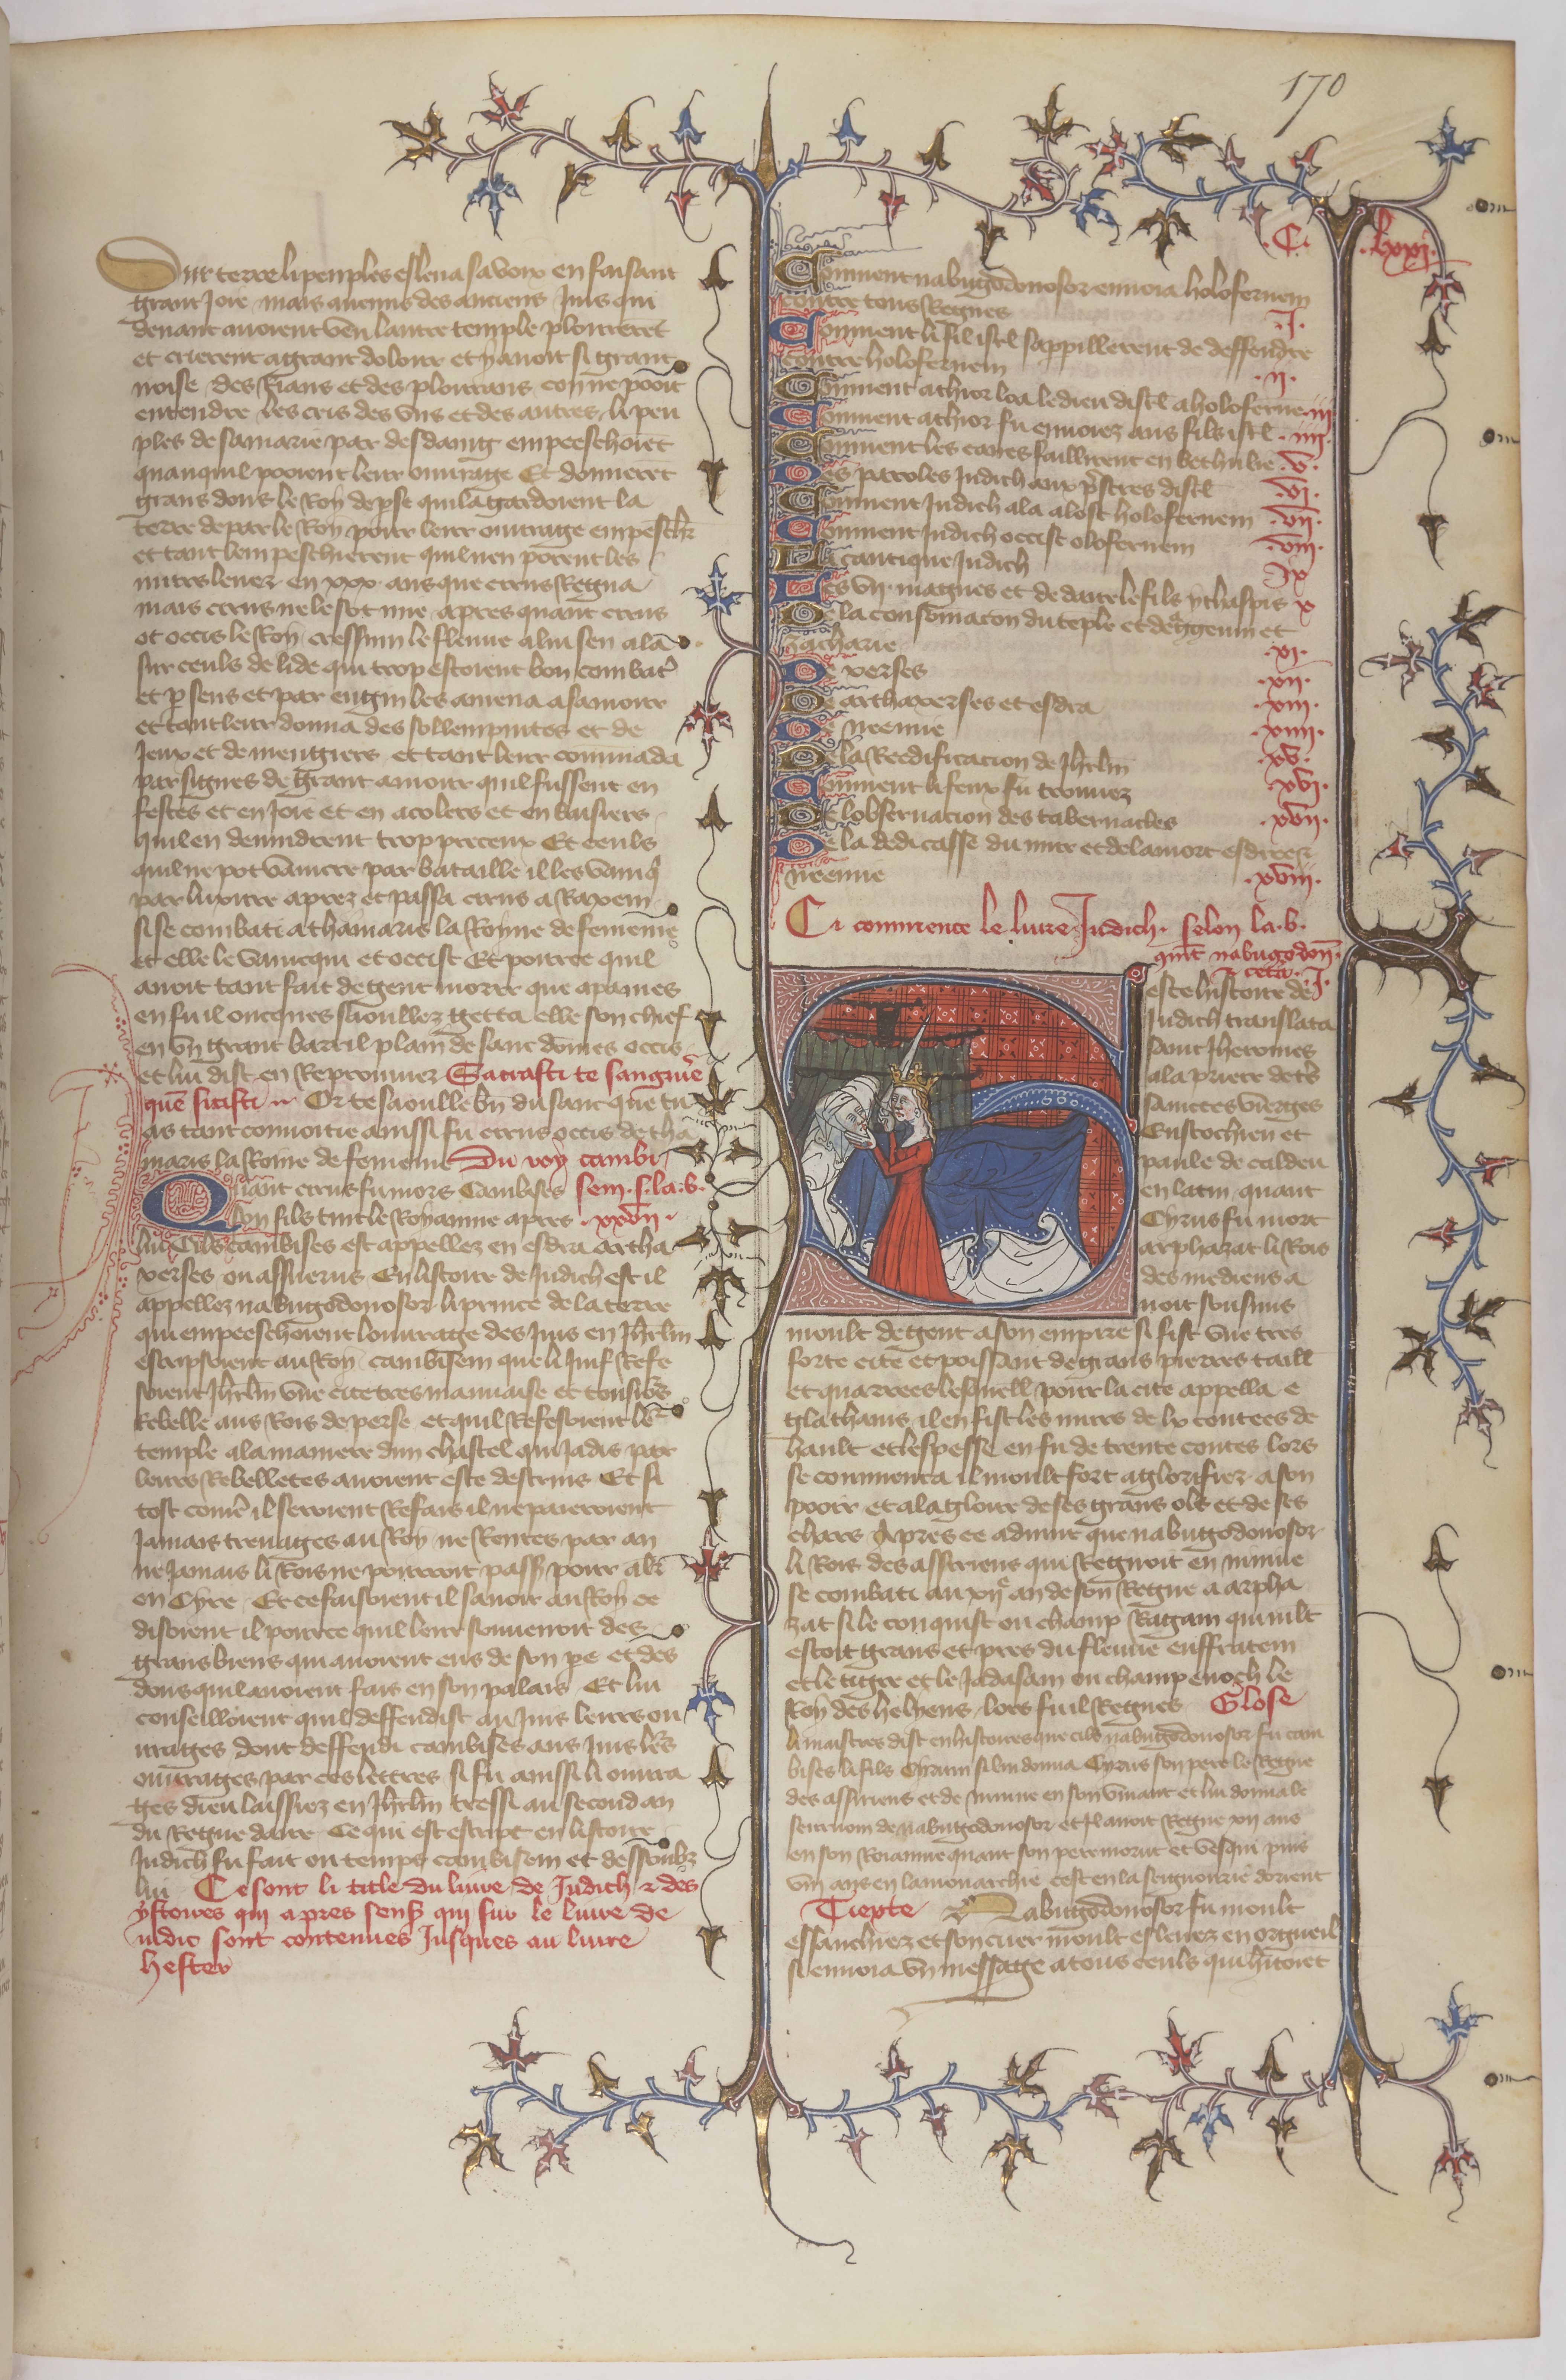 170
.C. .lxxi.
Sur terre li peuples esleua sa voix en faisant
grant Joie mais aucuns des anciens Juis qui
deuant auoient veu lautre temple plourerēt
et crierent a grant dolour et y auoit si grant
noise des Rians et des plourans con ne pooit
entendre les cris des vns et des autres li peu
ples de samarie par desdaing empeeschoiēt
quanquil pooient leur ouurage Et donnerēt
grans dons le Roy de pse qui la gardoient la
terre de par le Roy pour leur ouurage empeschr
et tant lempeschierent quil nen porent les
murs leuez en xxx ans que cirus Regna
mais cirus ne le sot mie apres quant cirus
ot occis le Roy cressum le fleuue alim sen ala
sur ceuls de lide qui trop estoient bon combat
et p sens et par engin les amena a samour
et tant leur donna des sollempnites et de
Jeux et de mengiers et tant leur commāda
par signes de grant amour quil fussent en
festes et en Joie et en acolers et en baisiers
quil en deuindrent trop pereceux Et ceuls
quil ne pot vaincre par bataille il les vainq
par luxure aprez et passa cirus a Raxem
si se combati a thamaris la Royne de femenie
et elle le vaincqui et occist Et pource quil
auoit tant fait de gent morir que a paines
en fu il oncques saoullez getta elle son chief
en vn grant barril plain de sanc dōmes occis
et lui dist en Reprouuez Saciasti te sanguīe
quē sitisti Or te saoulle bn du sanc que tu
as tant conuoitie ainssi fu cirus occis de tha
maris la Roine de femenie Du roy cambi
sem .s. la .b. .xxvii.
Quant cirus fu mors Cambises
son fils tint le Royaume apres
lui Cils cambises est appellez en esdra artha
xerses ou assuerus En listoire de Judich est il
appellez nabugodonosor li prince de la terre
qui empeeschoient louurage des Juis en Jhrlm
escripsoient au Roy cambisem que li Juif Refe
soient Jhrlm vne cite tres mauuaise et tousiōs
Rebelle aus Rois de perse et quil Refesoient lr
temple a la maniere dun chastel qui Jadis par
leurs Rebelletes auoient este destruis Et si
tost come il seroient Refais il ne paieroient
Jamais treuages au Roy ne Rentes par an
ne Jamais li Rois ne pourroit pass pour alr
en Cyre Et ce faisoient il sauoir au Roy ce
disoient il pource quil leur souuenoit des
grans biens qui auoient eus de son pe et des
dons quil auoient fais en son palais Et lui
conseilloient quil deffendist au Juis leurs ou
urages dont deffendi cambises aus Juis lrs
ouurages par ces lettres si fu ainssi li ouura
ges dieu laissiez en Jhrlm tressi au second an
du Regne daire Ce qui est escript en listoire
Judich fu fait ou temps cambisem et dessoubz
lui Ce sont li title du liure de Judich et des
ystoires qui apres sens qui sur le liure de
iudic sont contenues Jusques au liure
hester
Comment nabugodonosor enuoia holofernem
contre tous Regnes .I.
Comment li fil isrl sappillerent de deffendre
contre holofernem .ii.
Comment athior loa le dieu disrl a holoferne .iii.
Comment athior fu enuoiez aus fils isrl .iiii.
Comment les eaues faillirent en bethulie .v.
Des paroles Judich aux pstres disrl .vi.
Comment Judich ala a lost holofernem .vii.
Comment Judich occist olofernem .viii.
La cantique Judich ix
Les vii magues et de daire le fils ythaspis x
De la consōmacion du tēple et daggeum et
zacharie .xi.
De xerses .xii.
De arthaxerses et esdra .xiii.
De neemie .xiiii.
De la Reedificacion de Jhrlm .xv.
Comment li feux fu trouuez .xvi.
De lobseruacion des tabernacles .xvii.
De la dedicasse du mur et de la mort esdree et
neemie .xviii.
Ci commence le liure Judich. selon la .b.
quīt nabugodoñ.
et cetr. .I.
Ceste histoire de
Judich translata
saint Jheromes
a la priere de ts
sainctes vierges
Eustochien et
paule de caldeu
en latin quant
Cyrus fu mort
arphazat li Rois
des mediens a
uoit sousmis
moult de gent a son empire si fist vne tres
forte cite et poissant de grans pierres taill
et quarrees lesquell pour la cite appella e
gbathanis il en fist les murs de lx coutees de
hault et lespesse en fu de trente coutes lors
se commenca il moult fort a glorifier a son
pooir et a la gloire de ses grans ols et de ses
chars Apres ce aduint que nabugodonosor
li Rois des assiriens qui Regnoit en niniue
se combati au xiie an de son Regne a arpha
zat si le conquist ou champ Ragam qui mlt
estoit grans et pres du fleuue euffratem
et le tigre et le Jadasam ou champ enoch le
Roy des helyens lors fu il Regnes Glose
li maistres dist en histoires que cilz nabugodonosor fu cam
bises li fils Cyrum si lui donna Cyrus son pere le Regne
des assiriens et de niniue en son viuant et lui donna le
seurnom de nabugodonosor et il auoit Regne xii ans
en son Roiaume quant son pere morut et vesqui puis
viii ans en la monarchie cest en la seignourie dorient
Tiexte Nabugodonosor fu moult
essauchiez et son cuer moult esleuez en orgueil
si enuoia vn message a tous ceuls qui hitoiēt